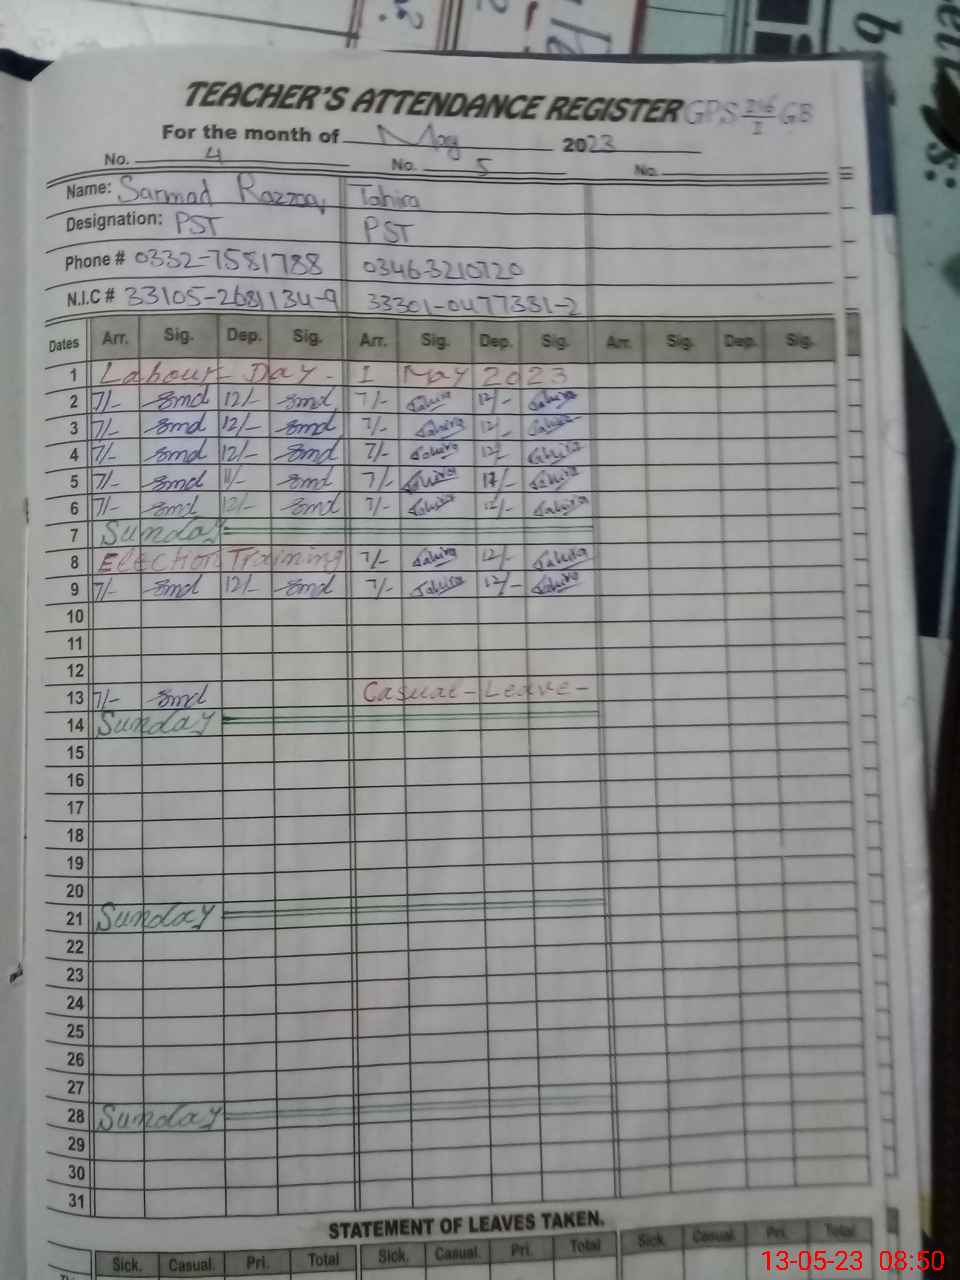 TEACHER'S ATTENDANCE REGISTER GPS 216/I GB
For the month of May 2023
No. 4 No. 5 No.
Name: Sarmad Razzaq Tahira
Designation: PST PST
Phone # 0332-7581788 0346-3210720
N.I.C # 33105-2681134-9 33301-0477331-2
Dates Arr. Sig. Dep. Sig. Arr. Sig. Dep. Sig. Arr. Sig. Dep. Sig.
1 Labour Day - 1 May 2023
2 7/- Smd 12/- Smd 7/- Tahira 12/- Tahira
3 7/- Smd 12/- Smd 7/- Tahira 12/- Tahira
4 7/- Smd 12/- Smd 7/- Tahira 12/- Tahira
5 7/- Smd 11/- Smd 7/- Tahira 12/- Tahira
6 7/- Smd 12/- Smd 7/- Tahira 12/- Tahira
7 Sunday
8 Election Training 7/- Tahira 12/- Tahira
9 7/- Smd 12/- Smd 7/- Tahira 12/- Tahira
10
11
12
13 7/- Smd Casual - Leave -
14 Sunday
15
16
17
18
19
20
21 Sunday
22
23
24
25
26
27
28 Sunday
29
30
31
STATEMENT OF LEAVES TAKEN.
Sick. Casual. Pri. Total Sick. Casual. Pri. Total Sick. Casual. Pri. Total
13-05-23 08:50